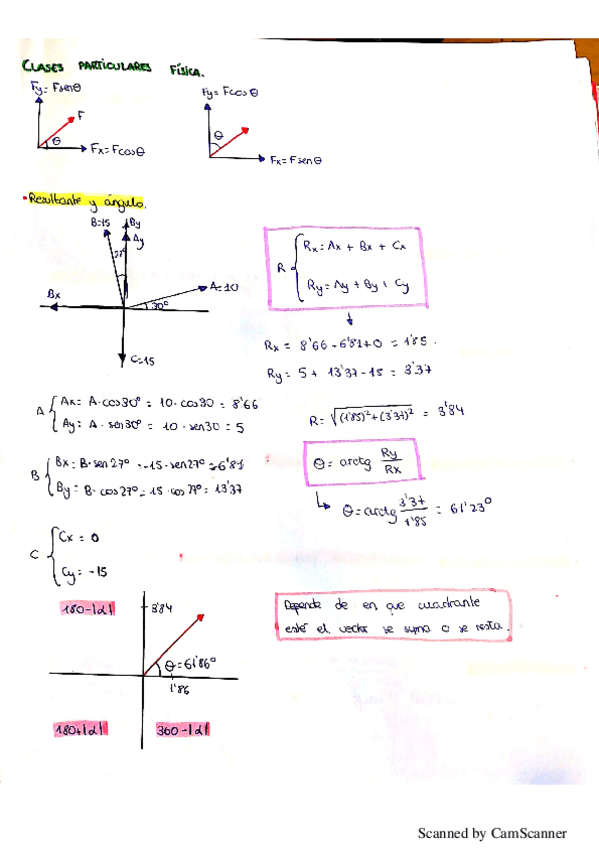 CLASES PARTICULARES FÍSICA.
Fy=Fsenθ
F
θ
Fx=Fcosθ
Fy=Fcosθ
θ
Fx=Fsenθ
• Resultante y ángulo.
B=15
By
Ay
27°
Bx
A=10
30°
C=15
R { Rx=Ax + Bx + Cx
Ry=Ay + By + Cy
Rx = 8'66 - 6'81+0 = 1'85.
Ry= 5 + 13'37-15 = 3'37
A { Ax= A·cos30° = 10·cos30 = 8'66
Ay= A · sen30° = 10 · sen30 = 5
R= √(1'85)²+(3'37)² = 3'84
B { Bx= B·sen27° = -15·sen27° = -6'81
By= B·cos27° = 15·cos27° = 13'37
θ= arctg Ry/Rx
θ=arctg 3'37/1'85 = 61'23°
C { Cx = 0
Cy= -15
180-|α|
3'84
θ=61'86°
1'86
180+|α|
360-|α|
Depende de en que cuadrante
esté el vector se suma o se resta.
Scanned by CamScanner